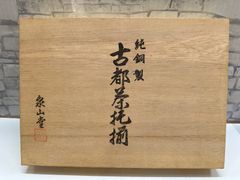 純銅製
古都茶托揃
泉山堂